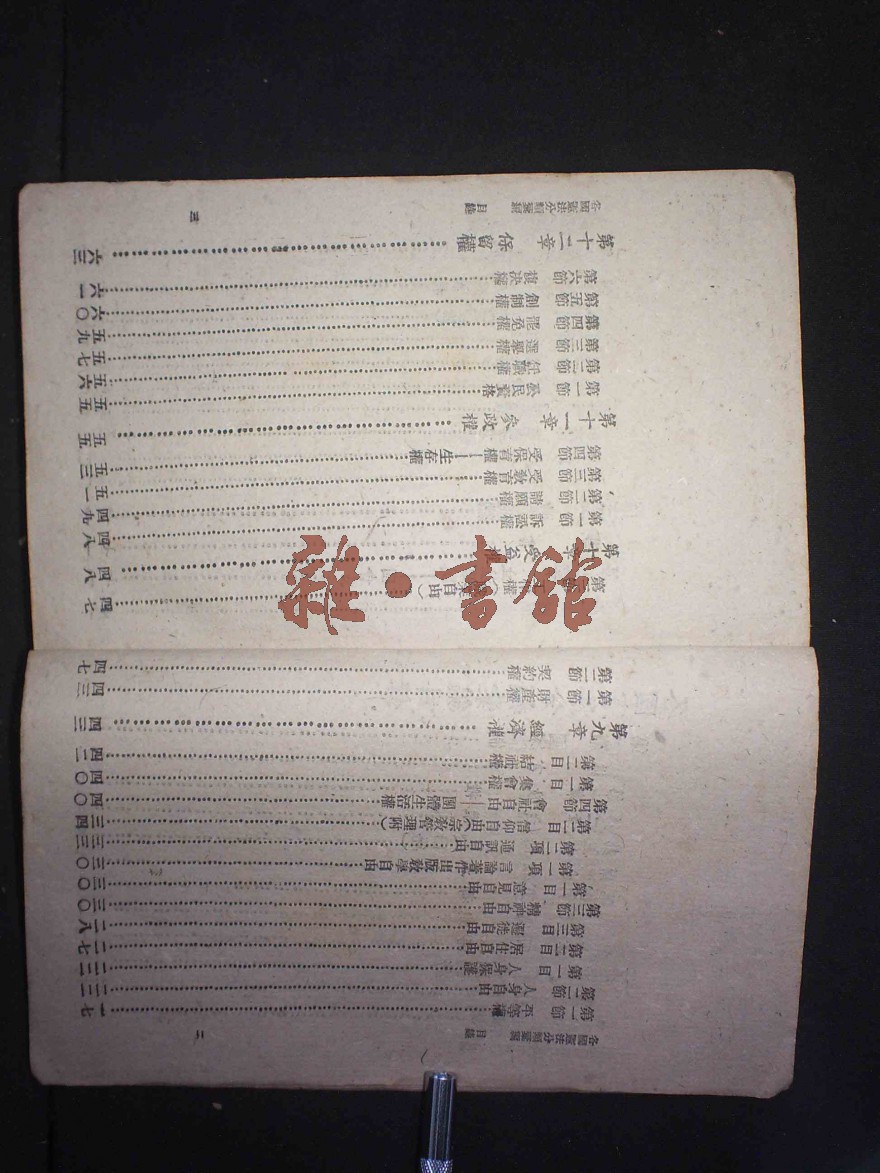 各國憲法分類彙編 目錄 二
第一節 平等權 一七
第二節 人身自由 二二
第一目 人身保護 二二
第二目 居住自由 二七
第三目 遷徙自由 二八
第三節 精神自由 三〇
第一目 意見自由 三〇
第一項 言論著作出版教學自由 三〇
第二項 通訊自由 三三
第二目 信仰自由(宗教管理附) 三四
第四節 會社自由——團體生活權 四〇
第一目 集會權 四〇
第二目 結社權 四二
第九章 經濟權 四三
第一節 財產權 四三
第二節 契約權 四七
各國憲法分類彙編 目錄 三
第三節 權( 自由) 四七
第十章 受益權 四八
第一節 訴訟權 四八
第二節 請願權 四九
第三節 受教育權 五一
第四節 受保育權——生存權 五三
第十一章 參政權 五五
第一節 公民資格 五五
第二節 任職權 五六
第三節 選舉權 五七
第四節 罷免權 五九
第五節 創制權 六〇
第六節 複決權 六一
第十二章 保留權 六三
雜·書館